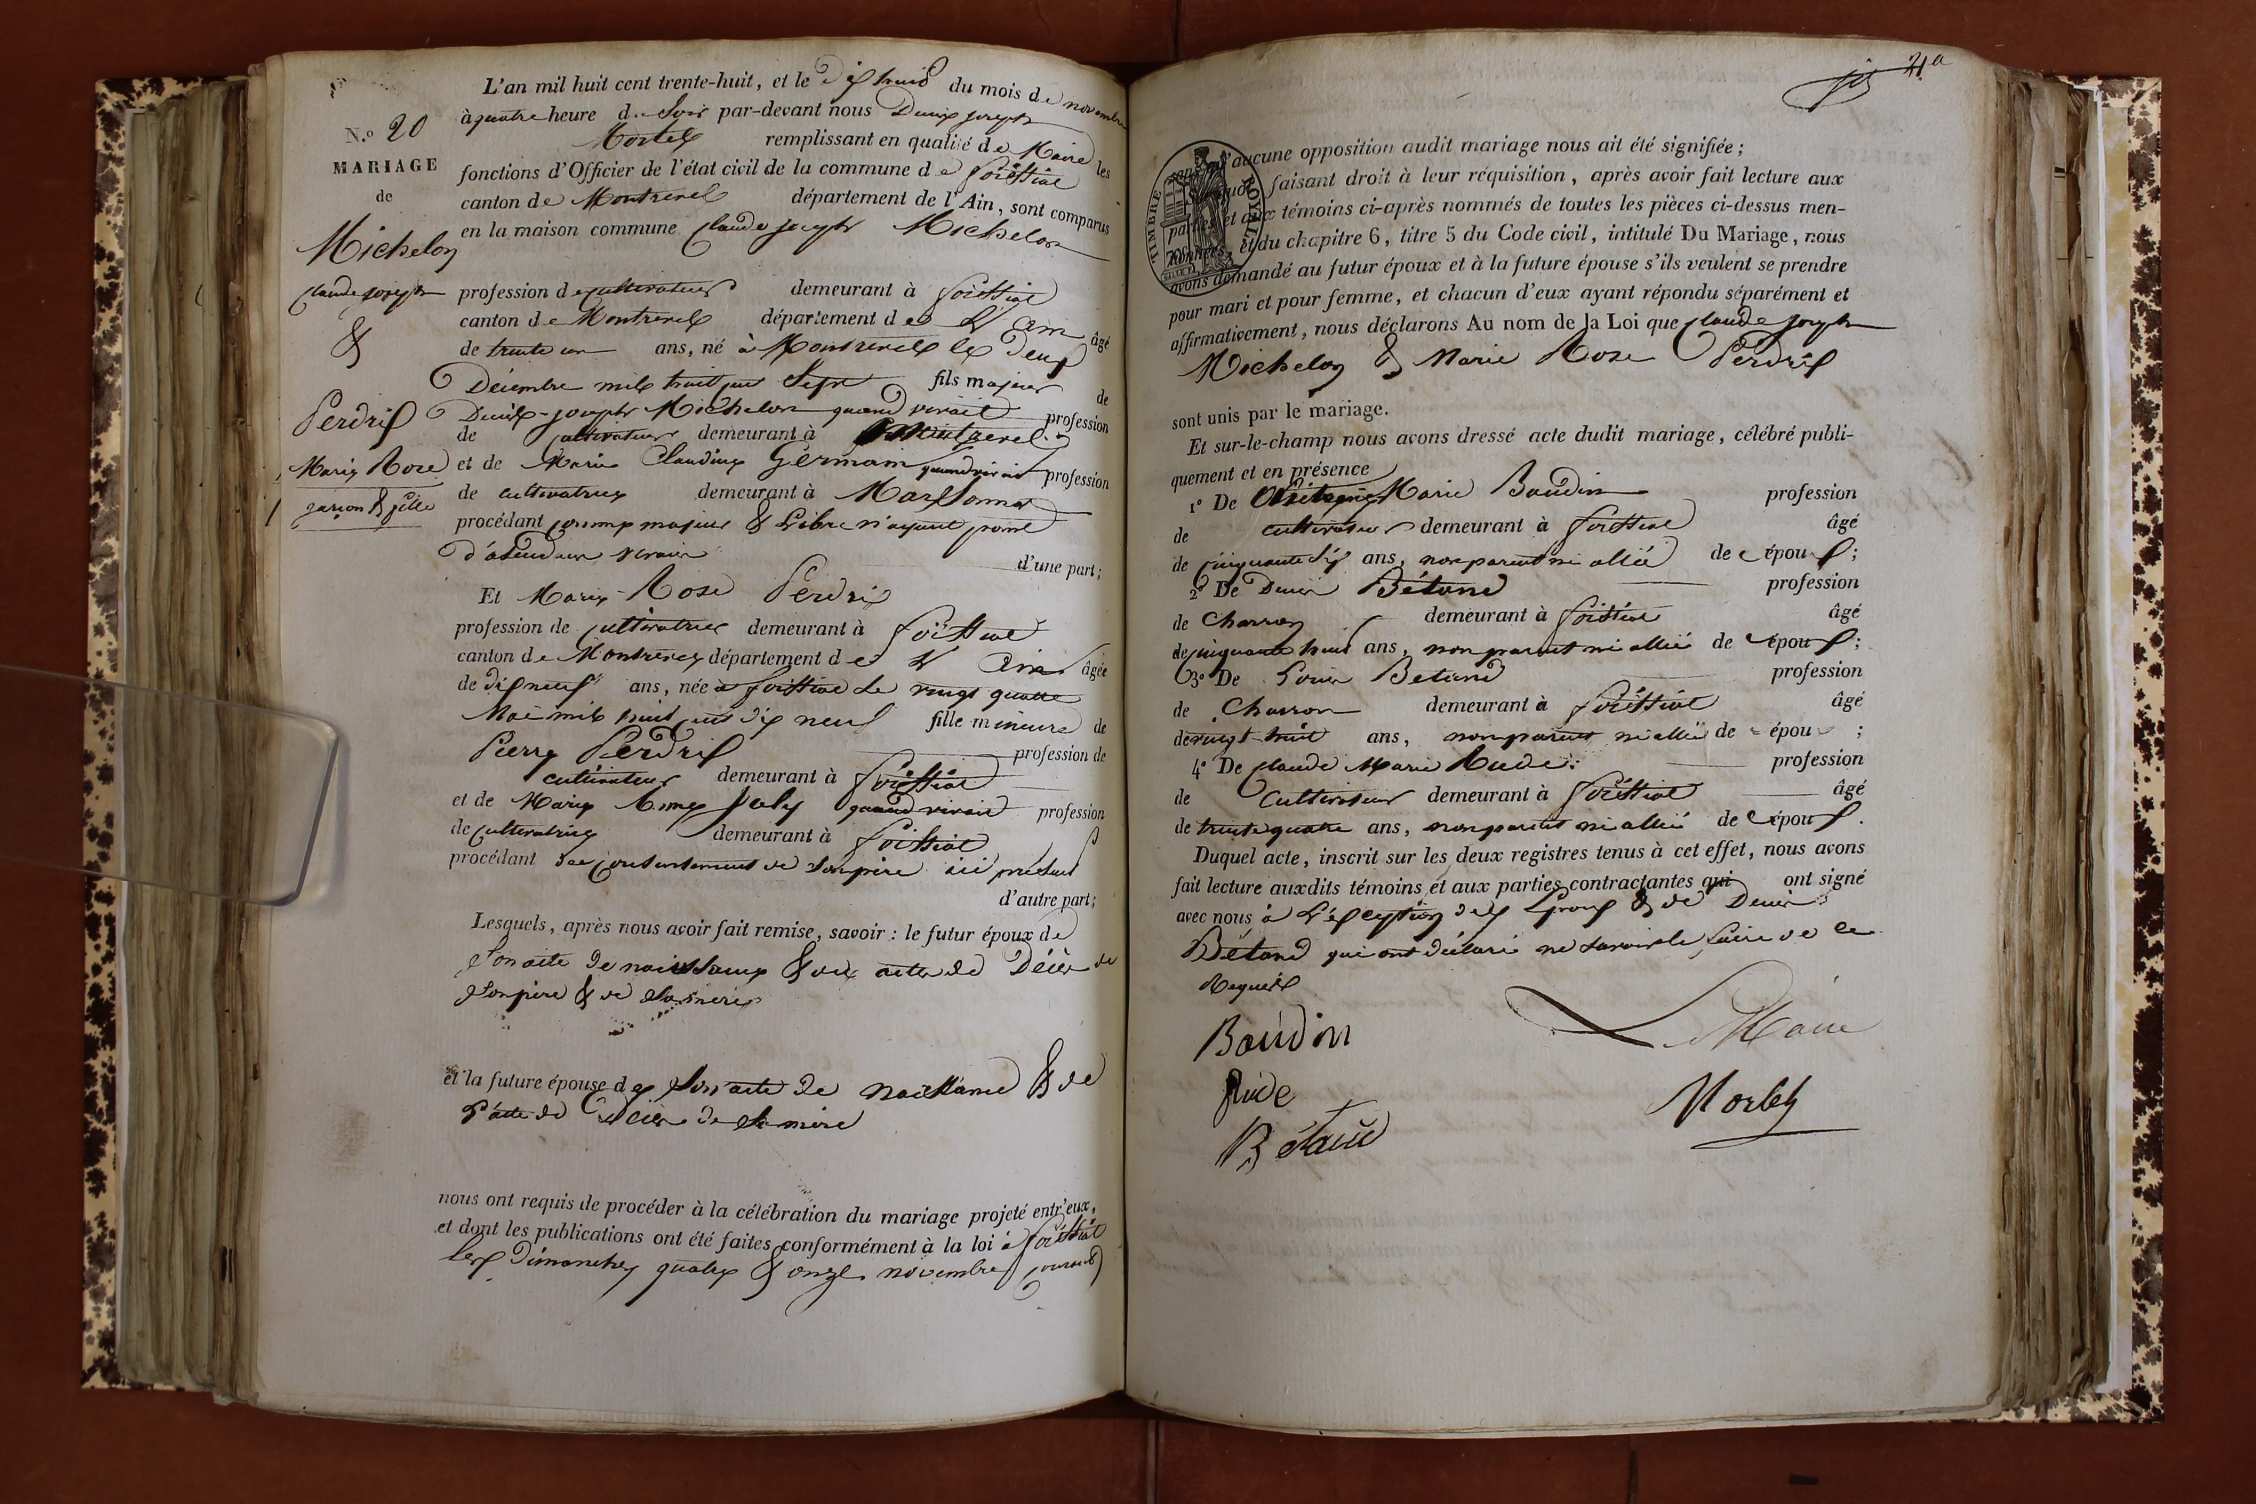 L'an mil huit cent trente-huit, et le dix huit du mois de novembre
à quatre heure d. Soir par-devant nous Denis joseph
Morlet remplissant en qualité de Maire les
fonctions d'Officier de l'état civil de la commune de foissiat
canton de Montrevel département de l'Ain, sont comparus
en la maison commune Claude joseph Michelon
N.º 20
MARIAGE
de
Michelon
Claude joseph
&
Perdrix
Marie Rose
garçon & fille
profession de cultivateur demeurant à foissiat
canton de Montrevel département de L'ain âgé
de trente un ans, né à Montrevel le deux
Décembre mil huit cent Sept fils majeur de
Denis-joseph Michelon quand vivait profession
de cultivateur demeurant à Montrevel
et de Marie Claudine Germain quand vivait profession
de cultivatrice demeurant à Marsonnas
procédant comme majeur & Libre n'ayant point
d'ascendans vivans
d'une part;
Et Marie Rose Perdrix
profession de cultivatrice demeurant à foissiat
canton de Montrevel département de L'ain âgée
de dix neuf ans, née à foissiat le vingt quatre
Mai mil huit cent dix neuf fille mineure de
Pierre Perdrix profession de
cultivateur demeurant à foissiat
et de Marie Joly quand vivait profession
de cultivatrice demeurant à foissiat
procédant du consentement de son père ici présent
d'autre part;
Lesquels, après nous avoir fait remise, savoir : le futur époux de
Son acte de naissance & des actes de Décès de
Son père & de Sa mère
et la future épouse de Son acte de naissance & de
l'acte de décès de Sa mère
nous ont requis de procéder à la célébration du mariage projeté entr'eux,
et dont les publications ont été faites conformément à la loi à foissiat
les dimanches quatre & onze novembre courant
21
sans qu'aucune opposition audit mariage nous ait été signifiée;
Sur quoi faisant droit à leur réquisition, après avoir fait lecture aux
parties et aux témoins ci-après nommés de toutes les pièces ci-dessus men-
tionnées et du chapitre 6, titre 5 du Code civil, intitulé Du Mariage, nous
avons demandé au futur époux et à la future épouse s'ils veulent se prendre
pour mari et pour femme, et chacun d'eux ayant répondu séparément et
affirmativement, nous déclarons Au nom de la Loi que Claude joseph
Michelon & Marie Rose Perdrix
TIMBRE ROYAL
sont unis par le mariage.
Et sur-le-champ nous avons dressé acte dudit mariage, célébré publi-
quement et en présence
1º De Marie Baudin profession
de cultivateur demeurant à foissiat âgé
de cinquante six ans, non parent ni allié de époux;
2º De Denis Bétand profession
de Charron demeurant à foissiat âgé
de cinquante huit ans, non parent ni allié de époux;
3º De Louis Betand profession
de Charron demeurant à foissiat âgé
de vingt-huit ans, non parent ni allié de époux;
4º De Claude Marie Rude profession
de Cultivateur demeurant à foissiat âgé
de trente quatre ans, non parent ni allié de époux.
Duquel acte, inscrit sur les deux registres tenus à cet effet, nous avons
fait lecture auxdits témoins et aux parties contractantes qui ont signé
avec nous à L'exception des Epoux & de Denis
Bétand qui ont déclaré ne Savoir le faire de ce
Requis
Le Maire
Baudin
Rude
Morlet
Bétand